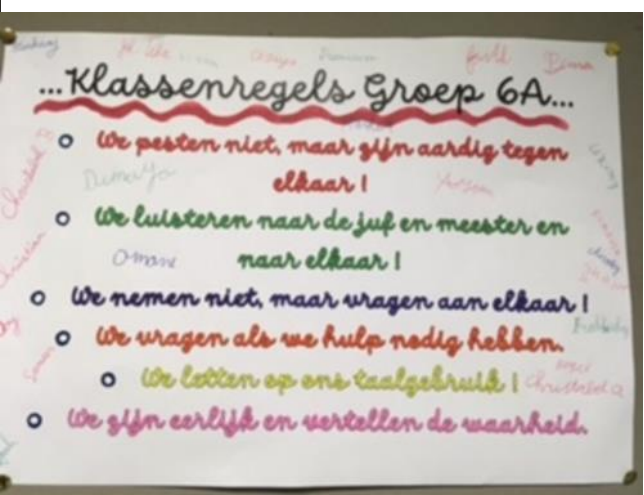 ...Klassenregels Groep 6A...
We pesten niet, maar zijn aardig tegen
elkaar !
Dimaya
We luisteren naar de juf en meester en
naar elkaar !
Omane
We nemen niet, maar vragen aan elkaar !
We vragen als we hulp nodig hebben.
We letten op ons taalgebruik !
We zijn eerlijk en vertellen de waarheid.